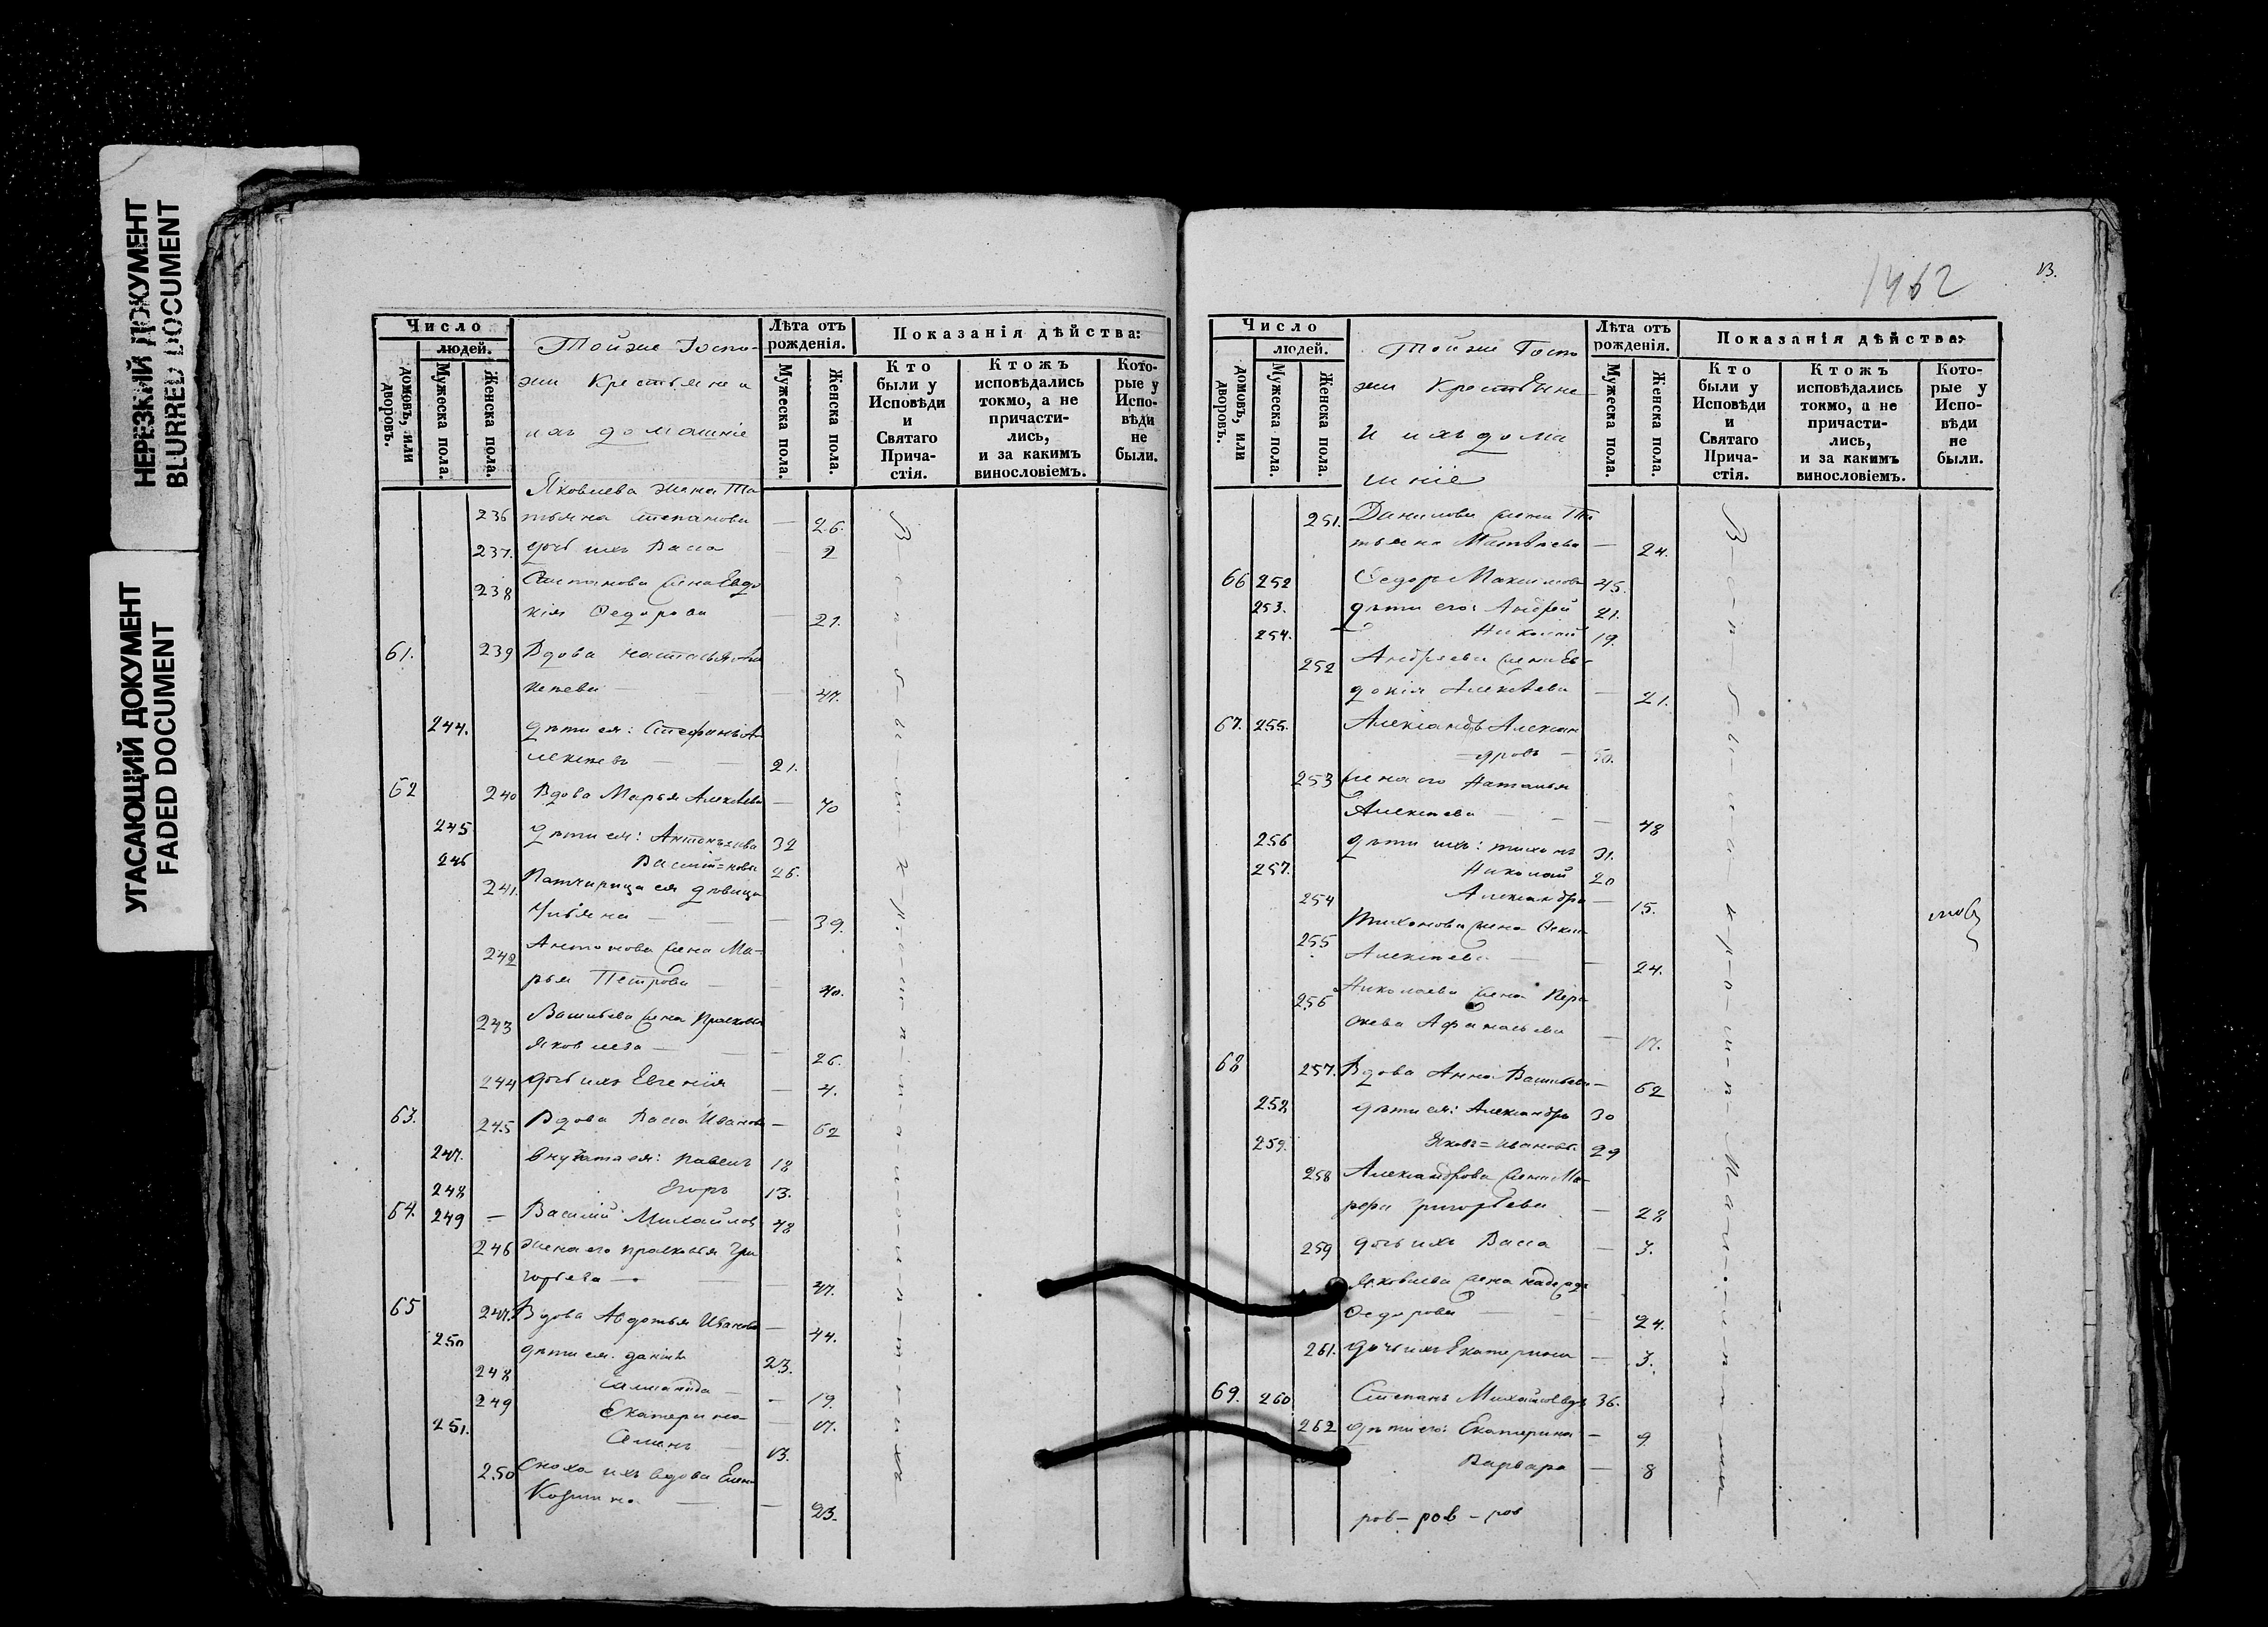 НЕРЕЗКИЙ ДОКУМЕНТ
BLURRED DOCUMENT
УГАСАЮЩИЙ ДОКУМЕНТ
FADED DOCUMENT
Число
людей.
домовъ, или дворовъ.
Мужеска пола.
Женска пола.
Тойже Госпо-
жи Крестьяне и
ихъ домашніе
Лѣта отъ рожденія.
Мужеска пола.
Женска пола.
Показанія дѣйства:
Кто были у Исповѣди и Святаго Прича-стія.
Ктожъ исповѣдались токмо, а не причасти-лись, и за какимъ винословіемъ.
Кото-рые у Испо-вѣди не были.
Яковлева жена Та
236 тьяна Степанова — 26.
237. дочь ихъ Васса — 2
238 Степанова жена Евдо
кія Федорова — 21.
61. 239 Вдова Настасья
— 47.
244. дѣти ея: Стефанъ А
лексѣевъ — 21.
62 240 Вдова Марья Алексѣева — 70
245 дѣти ея: 32
246 Василій 26.
241. Падчерица ея дѣвица
Ульяна — 39.
242 Антонова жена Ма-
рья Петрова — 40.
243 Васильева жена Прасковья
Яковлева — 26.
244 дочь ихъ Евгенія — 4.
63. 245 Вдова Васса Иванова — 62
247. внучата ея: Павелъ 18
248 Егоръ 13.
64. 249 — Василій Михайлов 48
246 жена его Прасковья Гри
горьева — 47.
65 247. Вдова Авдотья Иванова — 44.
250 дѣти ея: Данила 23.
248 — 19.
249 Екатерина — 17.
251. Семенъ 13.
250 Сноха ихъ вдова Елена
Козмина — 23.
1462
13.
Число
людей.
домовъ, или дворовъ.
Мужеска пола.
Женска пола.
Тойже Госпо
жи Крестьяне
и ихъ дома
шніе
Лѣта отъ рожденія.
Мужеска пола.
Женска пола.
Показанія дѣйства:
Кто были у Исповѣди и Святаго Прича-стія.
Ктожъ исповѣдались токмо, а не причасти-лись, и за какимъ винословіемъ.
Кото-рые у Испо-вѣди не были.
251. Данилова жена Та
тьяна Матвѣева — 24.
66 252 Федоръ Максимовъ 45.
253. дѣти его: Андрей 21.
254. Николай 19.
252 Андреева жена Ев
докія Алексѣева — 21.
67. 255. Александръ Алексан
=дровъ — 50.
253 жена его Наталья
Алексѣева — 48
256 дѣти ихъ: Тихонъ 31.
257. Николай 20
254 Александра — 15.
255 Тихонова жена
Алексѣева — 24.
256 Николаева жена
Афанасьева — 17.
68 257. Вдова Анна Васильева — 62
258 дѣти ея: Александръ 30
259. Яковъ = Ивановы 29
258 Александрова жена Ма-
рфа Григорьева — 28
259 дочь ихъ Васса — 3.
Яковлева жена Надежда
Федорова — 24.
261. дочь ихъ Екатерина — 3.
69. 260 Степанъ Михайлов 36.
262 дѣти его: Екатерина — 9
Варвара — 8
ров - ров - ров